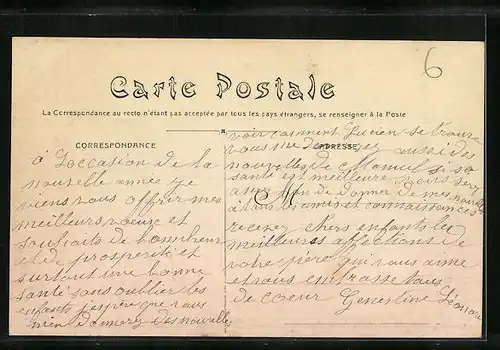 6
Carte Postale
La Correspondance au recto n'étant pas acceptée par tous les pays étrangers, se renseigner à la Poste
CORRESPONDANCE
à l'occasion de la
nouvelle année je
viens vous offrir mes
meilleurs voeux et
souhaits de bonheur
et de prosperité et
surtout une bonne
santé sans oublier les
enfants j'espère que vous
m'en donnerez des nouvelles
ADRESSE
voir comment Lucien se trouve
vous me donnerez aussi des
nouvelles de si sa
santé est meilleure
de donner de mes nouvelles
à tous et connaissances
recevez chers enfants les
meilleures affections de
votre père qui vous aime
et vous embrasse tous
de coeur